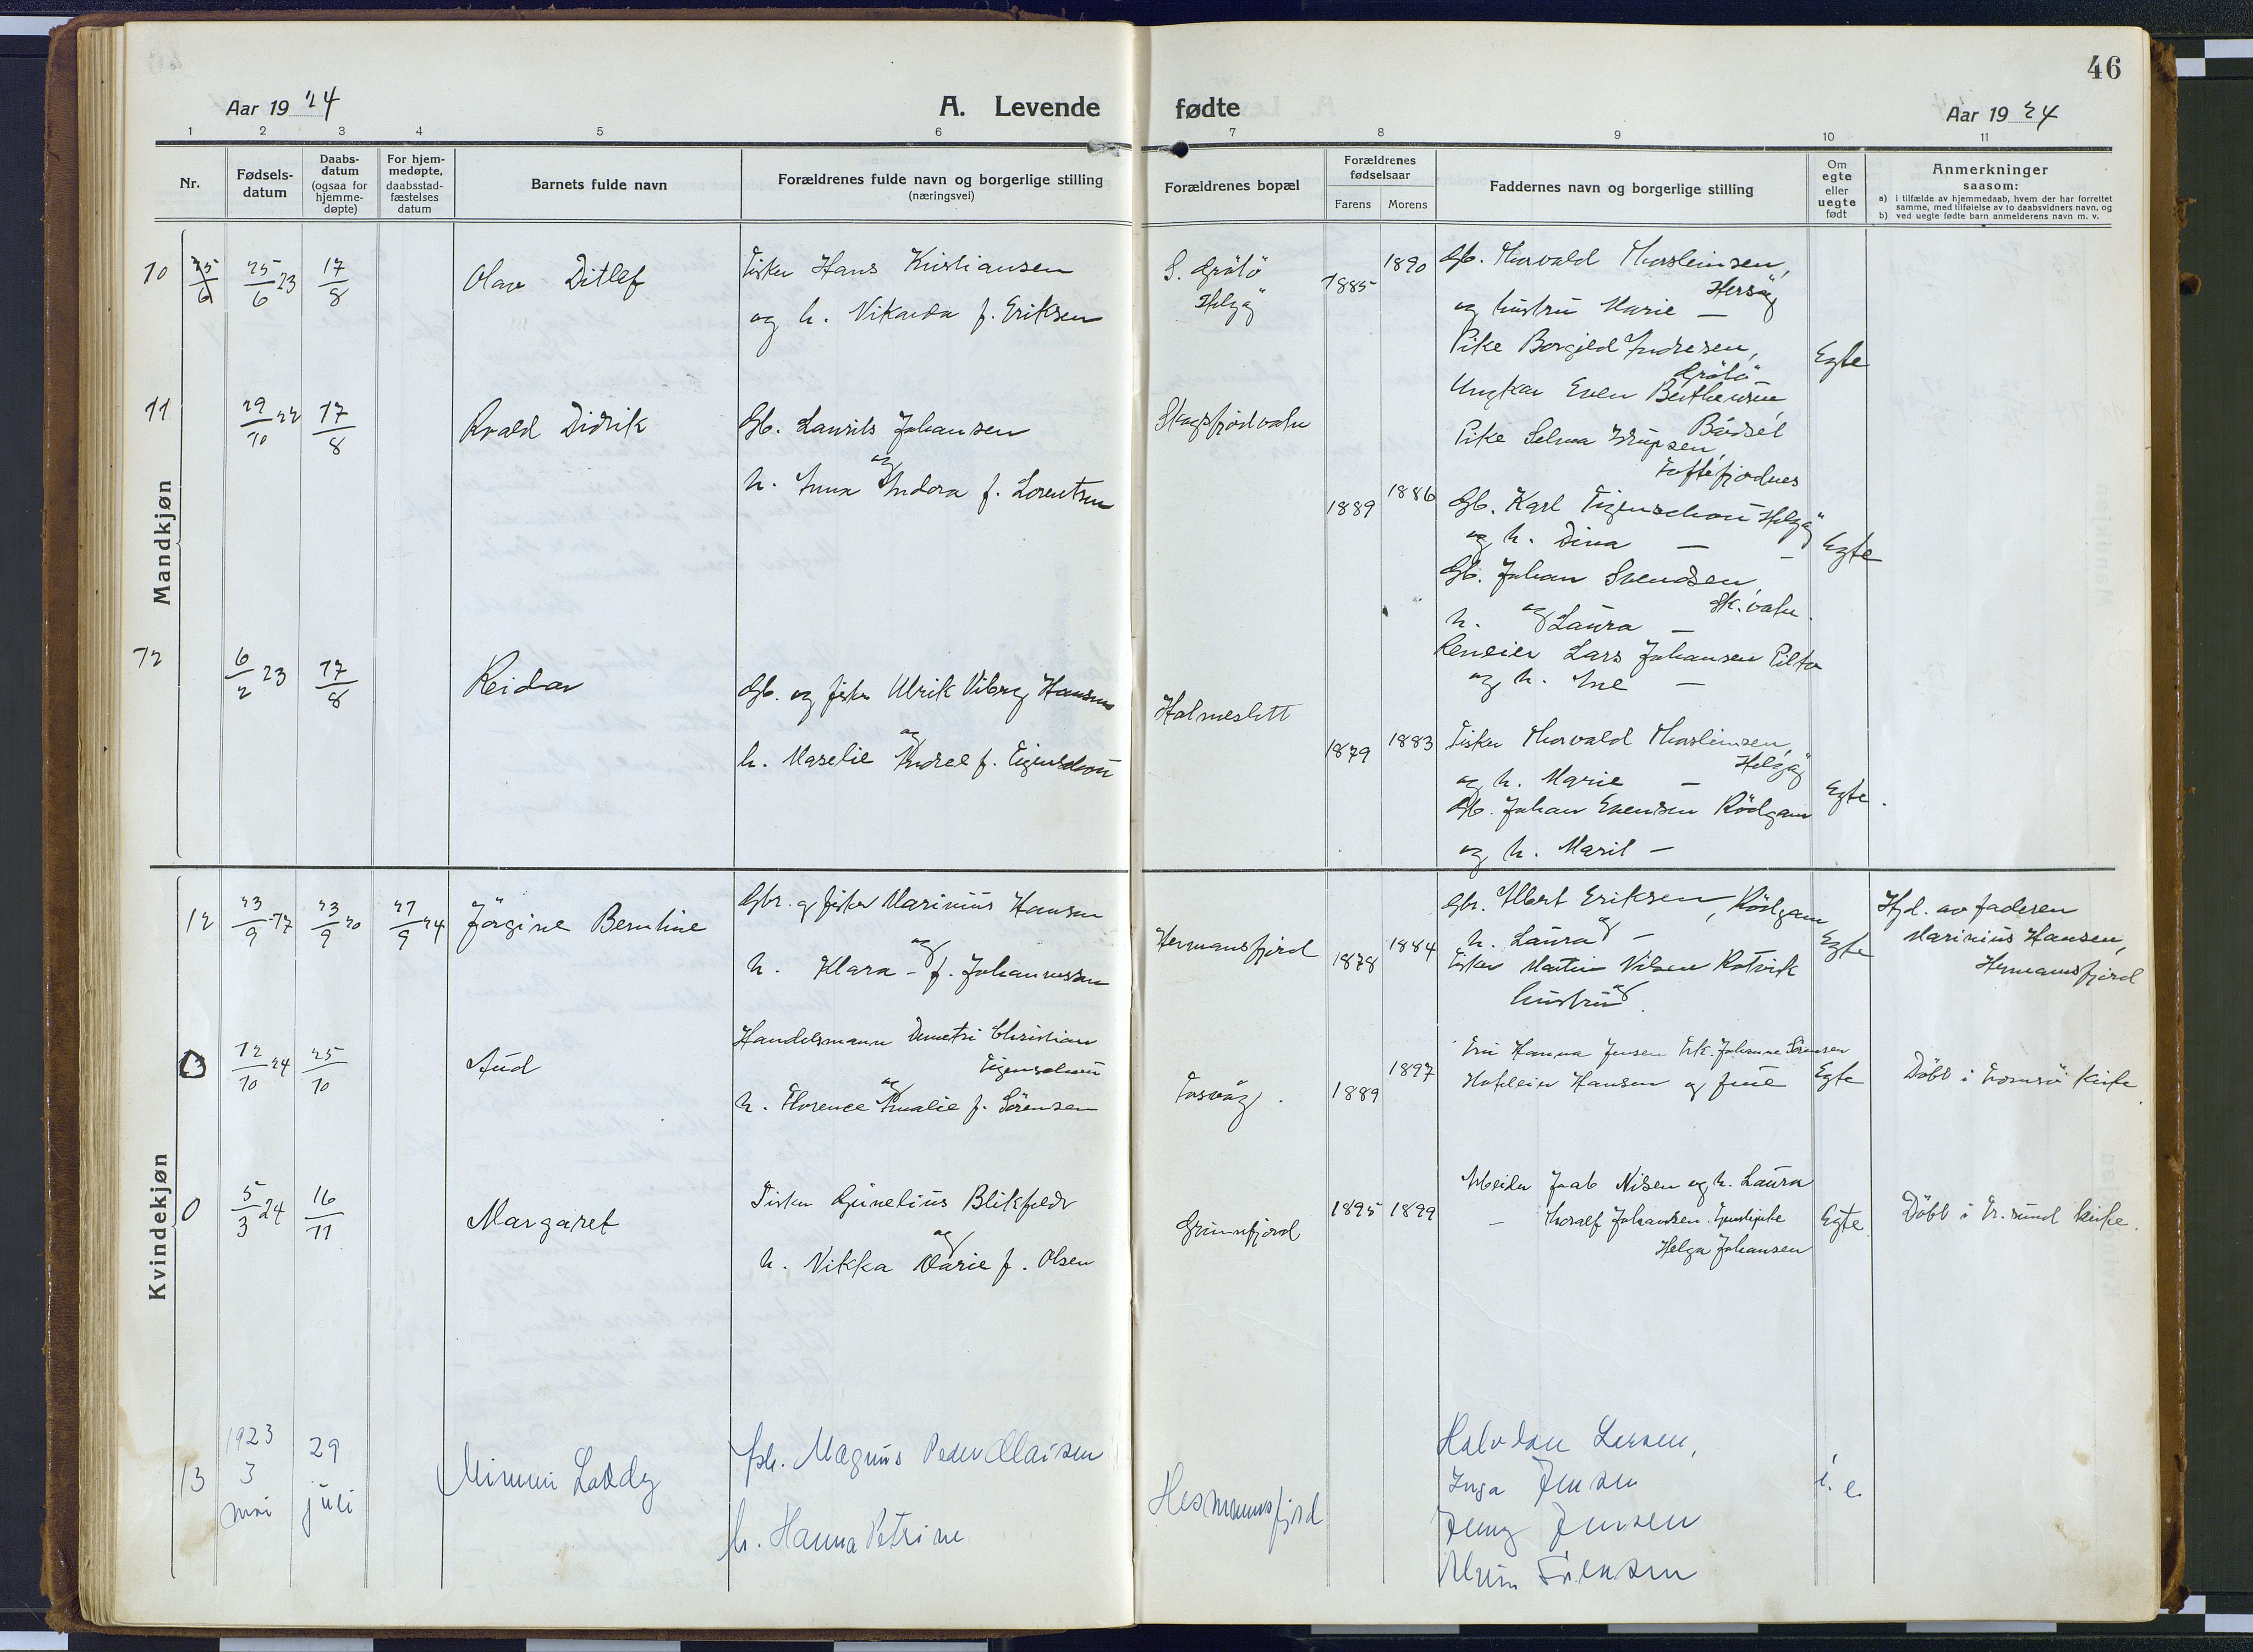 46
Aar 1924
A. Levende fødte
Aar 1924
1 2 3 4 5 6 7 8 9 10 11
Nr.
Fødsels-
datum
Daabs-
datum
(ogsaa for
hjemme-
døpte)
For hjem-
medøpte,
daabsstad-
fæstelses
datum
Barnets fulde navn
Forældrenes fulde navn og borgerlige stilling
(næringsvei)
Forældrenes bopæl
Forældrenes
fødselsaar
Farens Morens
Faddernes navn og borgerlige stilling
Om
egte
eller
uegte
født
Anmerkninger
saasom:
a) i tilfælde av hjemmedaab, hvem der har forrettet
samme, med tilføielse av to daabsvidners navn, og
b) ved uegte fødte barn anmelderens navn m. v.
Mandkjøn
10 25/6 25/6 23 17/8 Olav Ditlef
Fisker Hans Kristiansen
og h. Vikarda f. Eriksen
S. Grötö
Helgö
1885 1890
Gb. Thorvald Thorsteinsen,
og hustru Marie —
Pike Borgild Andresen,
Grötö
Ungkar Even Bertheusen
Baarset
Pike Selma
Toftefjordnes
Egte
11 29/10 22 17/8 Roald Didrik
Gb. Laurits Johansen
og
h. Anna Indora f. Lorentsen
Skogsfjordvatn
1889 1886
Gb. Karl Figenschou Helgö
og h. Dina — —
Gb. Johan Svendsen,
Sk.vatn.
h. og Laura —
Lars Johansen
og h. Ane —
Egte
12 6/2 23 17/8 Reidar
Gb. og fisker Ulrik Viborg Hansen
og
h. Marelie Andrea f. Figenschou
Holmeslett
1879 1883
Fisker Thorvald Thorsteinsen,
Helgö
og h. Marie —
Gb. Johan Evensen Rödgam
og h. Marit —
Egte.
Kvindekjøn
12 23/9 17 23/9 20 27/9 24 Jörgine Berntine
Gbr. og fisker Marinius Hansen
og
h. Klara - f. Johannessen
Hermansfjord
1878 1884
Gbr. Albert Eriksen, Rödgam
og
h. Laura —
Fisker Martin Nilsen Rotvik
og
hustru.
Egte
Hjd. av faderen
Marinius Hansen,
Hermansfjord
13 12/10 24 25/10 Aud
Handelsmann Demetri Christian
Figenschou
og
h. Florence Amalie f. Sörensen
Tosvåg.
1889 1897
Fru Hanna Jensen Frk. Johanne Sörensen
Hansen og frue
Egte
Döbt i Tromsö kirke.
0 5/3 24 16/11 Margaret
Fisker Gunelius Blikfeldt
og
h. Vikka Marie f. Olsen
Grunnfjord
1895 1899
Arbeider Jrab Nilsen og h. Laura
— Thoralf Johansen
Helga Johansen
Egte.
Döbt i Tr.sund kirke.
13
1923
3
mai
29
juli
Mimmi Loddy
fisk. Magnus Peder Olaisen
h. Hanna Petrine
Hermansfjord
Halvdan Larsen,
Inga Jensen
Jenny Jensen
i. e.